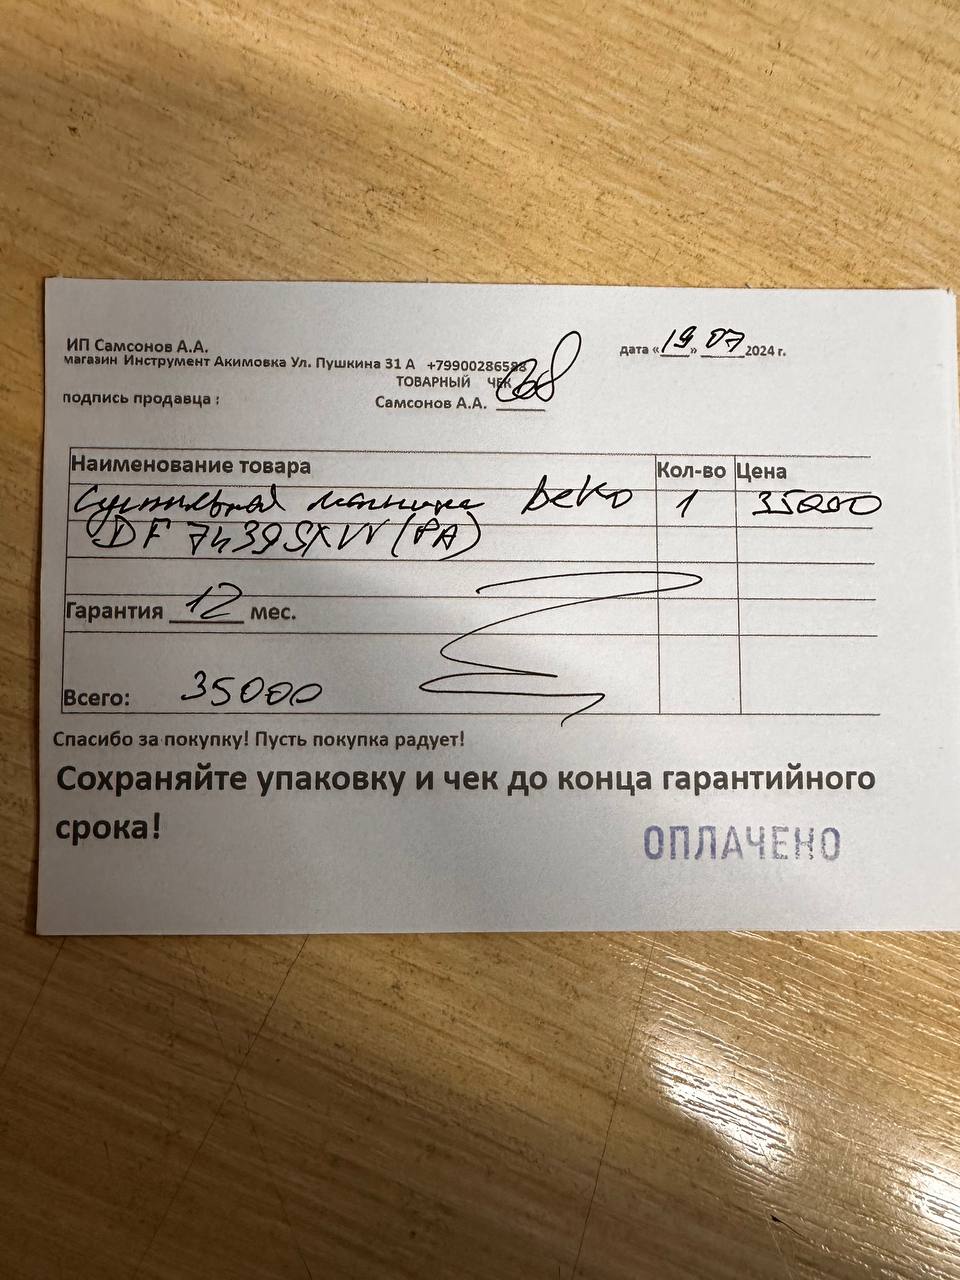 ИП Самсонов А.А.
дата «19» 07 2024 г.
магазин Инструмент Акимовка Ул. Пушкина 31 А +79900286588
ТОВАРНЫЙ ЧЕК
подпись продавца : Самсонов А.А.
Наименование товара Кол-во Цена
Сушильная машина Веко 1 35000
DF 7439SXW (PA)
Гарантия 12 мес.
Всего: 35000
Спасибо за покупку! Пусть покупка радует!
Сохраняйте упаковку и чек до конца гарантийного
срока!
ОПЛАЧЕНО